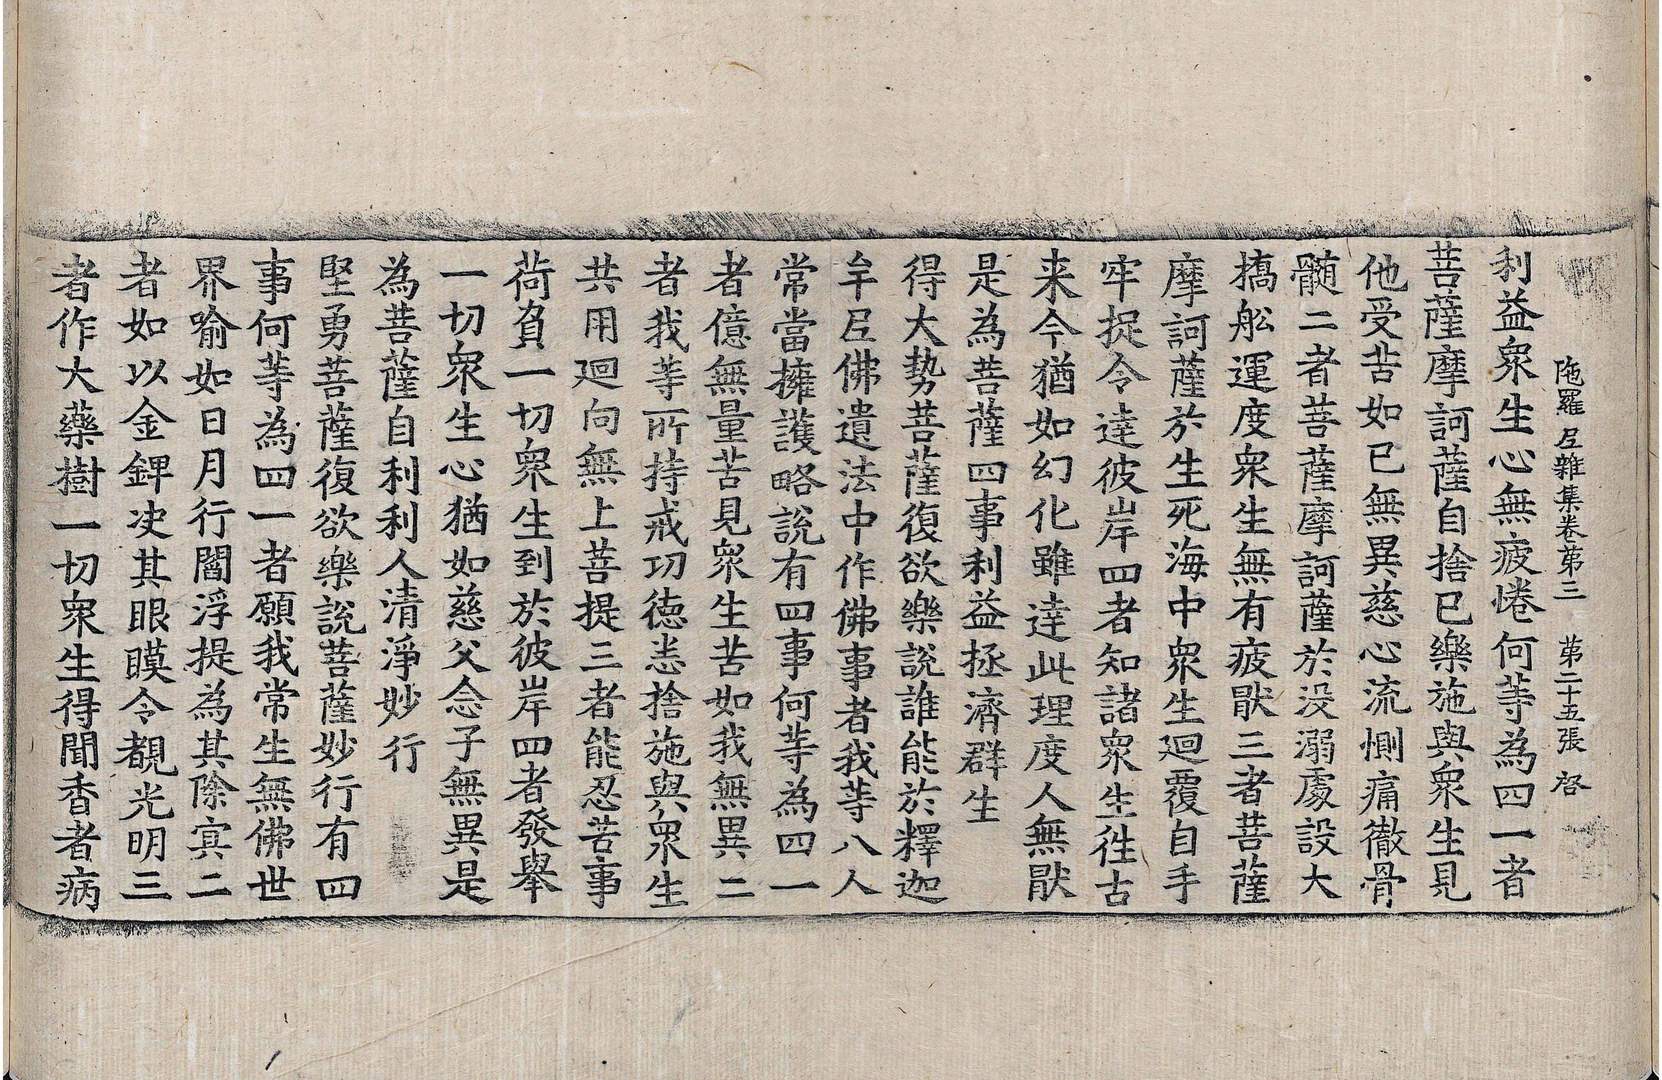 陁羅尼雜集卷第三　第二十五張　啓
利益衆生心無疲惓何等為四一者
菩薩摩訶薩自捨已樂施與衆生見
他受苦如已無異慈心流惻痛徹骨
髓二者菩薩摩訶薩於没溺處設大
橋舩運度衆生無有疲猒三者菩薩
摩訶薩於生死海中衆生迴覆自手
牢捉令達彼岸四者知諸衆生徃古
来今猶如幻化雖達此理度人無猒
是為菩薩四事利益拯濟群生
得大勢菩薩復欲樂說誰能於釋迦
牟尼佛遺法中作佛事者我等八人
常當擁護略說有四事何等為四一
者億無量苦見衆生苦如我無異二
者我等所持戒功徳恚捨施與衆生
共用迴向無上菩提三者能忍苦事
荷負一切衆生到於彼岸四者發舉
一切衆生心猶如慈父念子無異是
為菩薩自利利人清淨妙行
堅勇菩薩復欲樂說菩薩妙行有四
事何等為四一者願我常生無佛世
界喻如日月行閻浮提為其除㝠二
者如以金錍决其眼瞙令覩光明三
者作大藥樹一切衆生得聞香者病